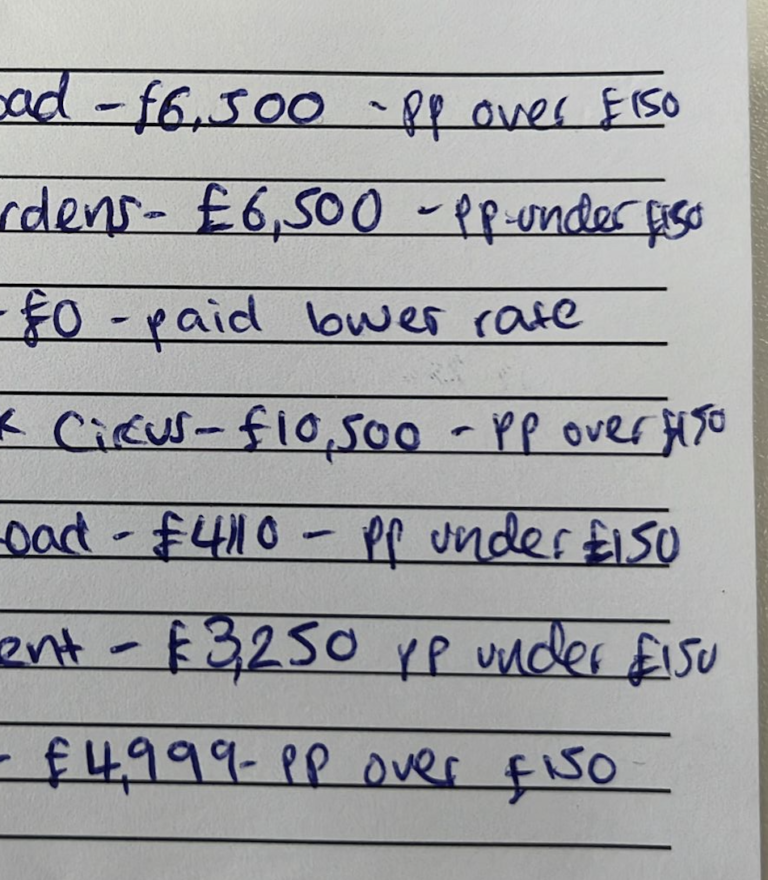 oad - £6,500 - pp over £150
rdens - £6,500 - pp under £150
- £0 - paid lower rate
k Circus - £10,500 - pp over £150
oad - £4110 - pp under £150
ent - £3,250 pp under £150
- £4,999 - pp over £150